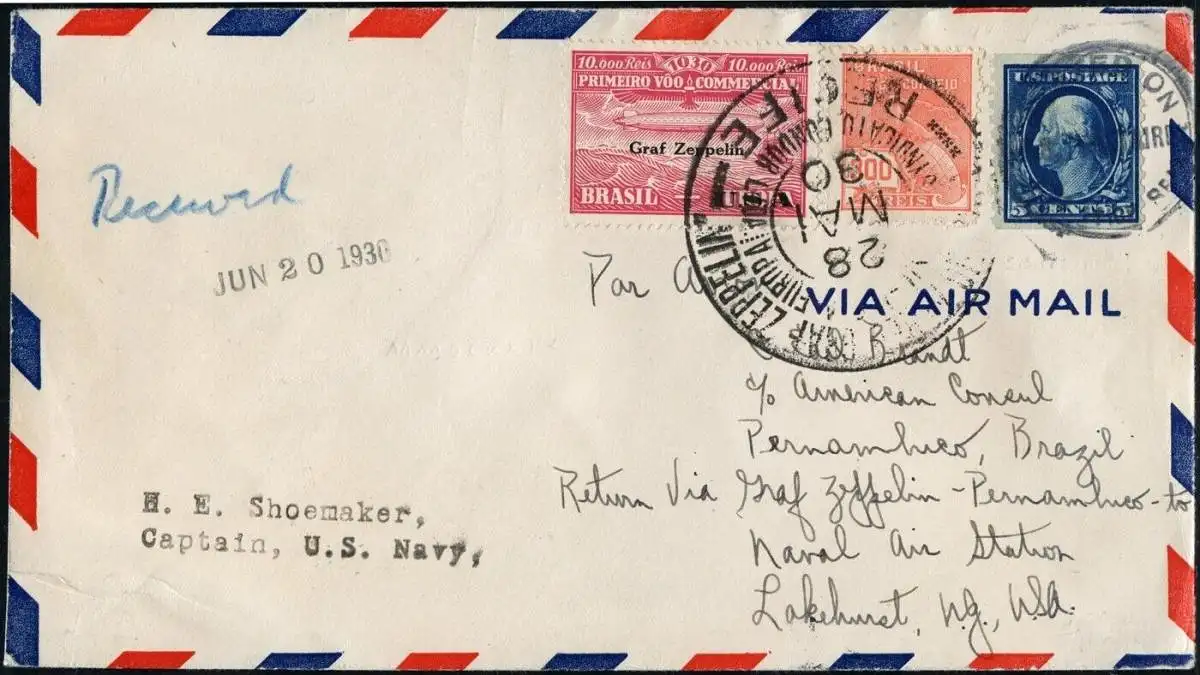 10.000 Reis 1930 10.000 Reis
PRIMEIRO VÔO COMMERCIAL
Graf Zeppelin
BRASIL
U.S.A.
BRASIL
CORREIO
300
REIS
U.S. POSTAGE
5 CENTS 5
RECIFE
SYNDICATO CONDOR LTDA
28 MAI 30
GRAF ZEPPELIN
EUROPA
Received
JUN 20 1930
Par
VIA AIR MAIL
Brandt
c/o American Consul
Pernambuco, Brazil
Return Via Graf Zeppelin - Pernambuco - to
Naval Air Station
Lakehurst, N.J., USA.
H. E. Shoemaker,
Captain, U.S. Navy,